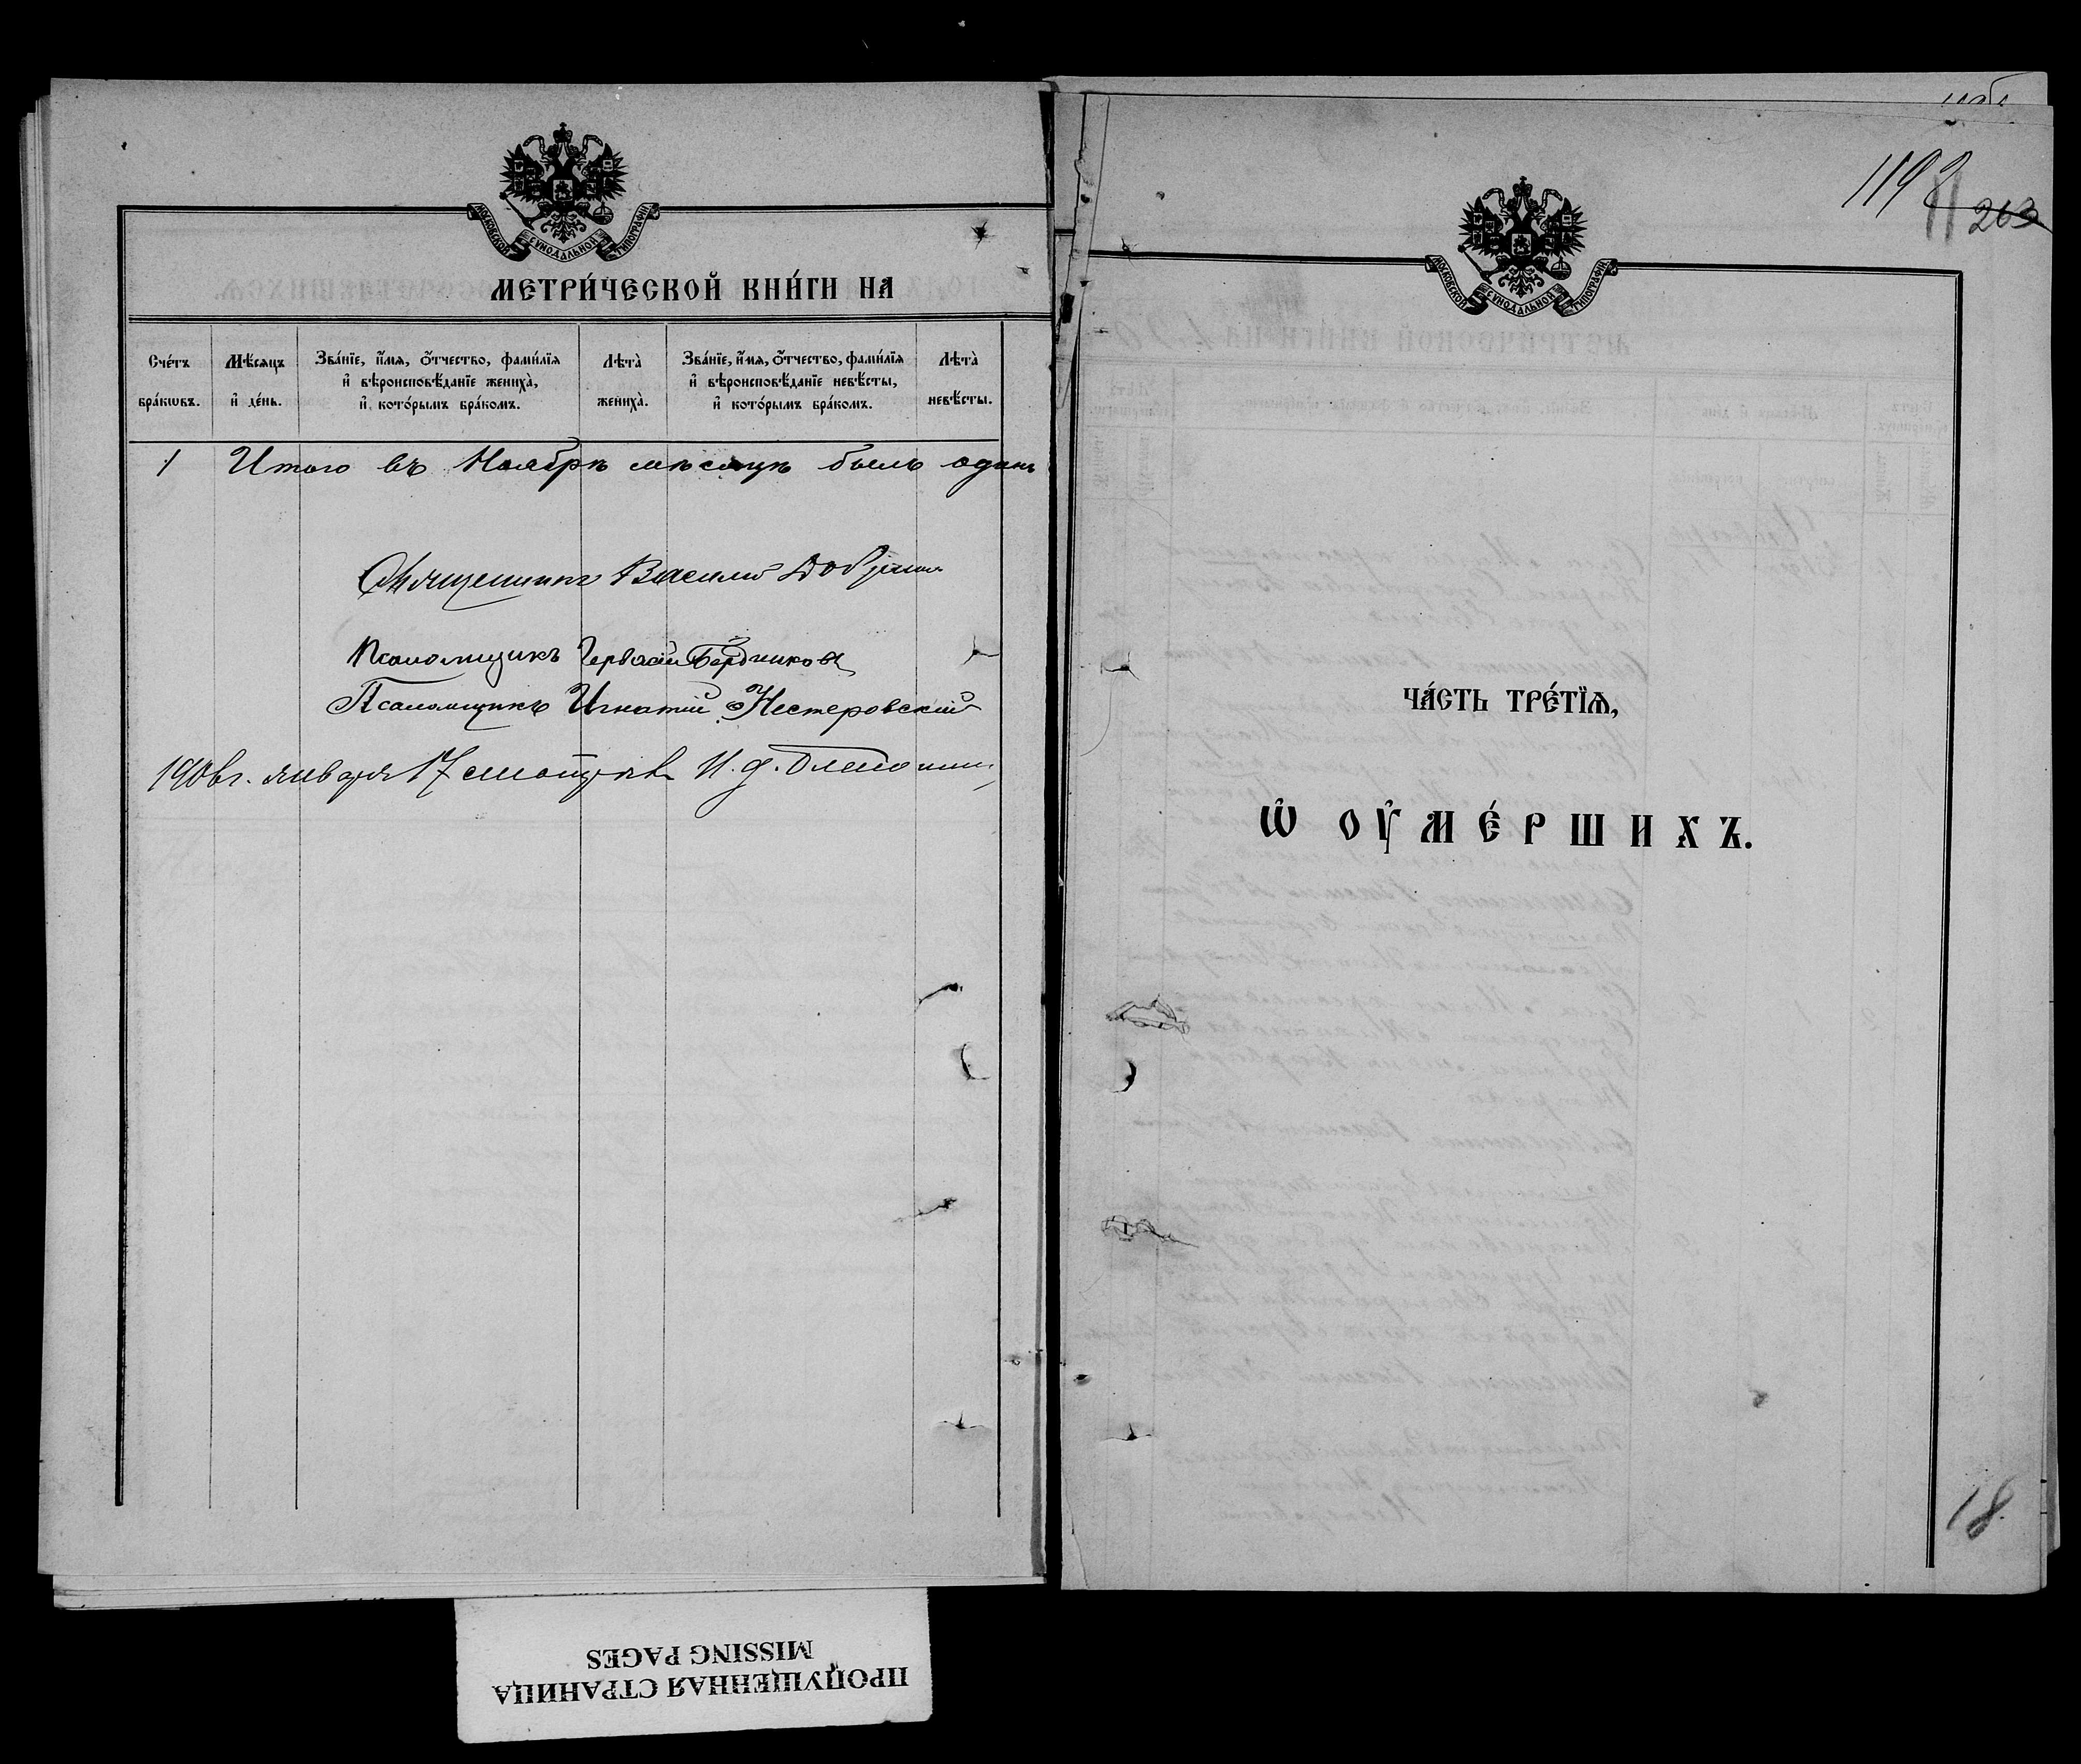 МОСКОВСКОЙ СѴНОДАЛЬНОЙ ТИПОГРАФІИ
МЕТРИ́ЧЕСКОЙ КНИ́ГИ НА
Сче́тъ бра́кѡвъ.
Мѣ́сяцъ и҆ де́нь.
Зва́нїе, и҆́мя, ѻ҆́тчество, фами́лїя
и҆ вѣроисповѣ́данїе жениха̀,
и҆ кото́рымъ бра́комъ.
Лѣта̀ жениха̀.
Зва́нїе, и҆́мя, ѻ҆́тчество, фами́лїя
и҆ вѣроисповѣ́данїе невѣ́сты,
и҆ кото́рымъ бра́комъ.
Лѣта̀ невѣ́сты.
1 Итого въ Ноябрѣ мѣсяцѣ былъ одинъ
Священникъ Василій
Псаломщикъ Гервасій Бердниковъ
Псаломщикъ Игнатій Нестеровскій
января 17 И. д.
1198
263
МОСКОВСКОЙ СѴНОДАЛЬНОЙ ТИПОГРАФІИ
ЧА́СТЬ ТРЕ́ТЇѦ,
Ѡ҆ ОУ҆МЕ́РШИХЪ.
18.
ПРОПУЩЕННАЯ СТРАНИЦА
MISSING PAGES